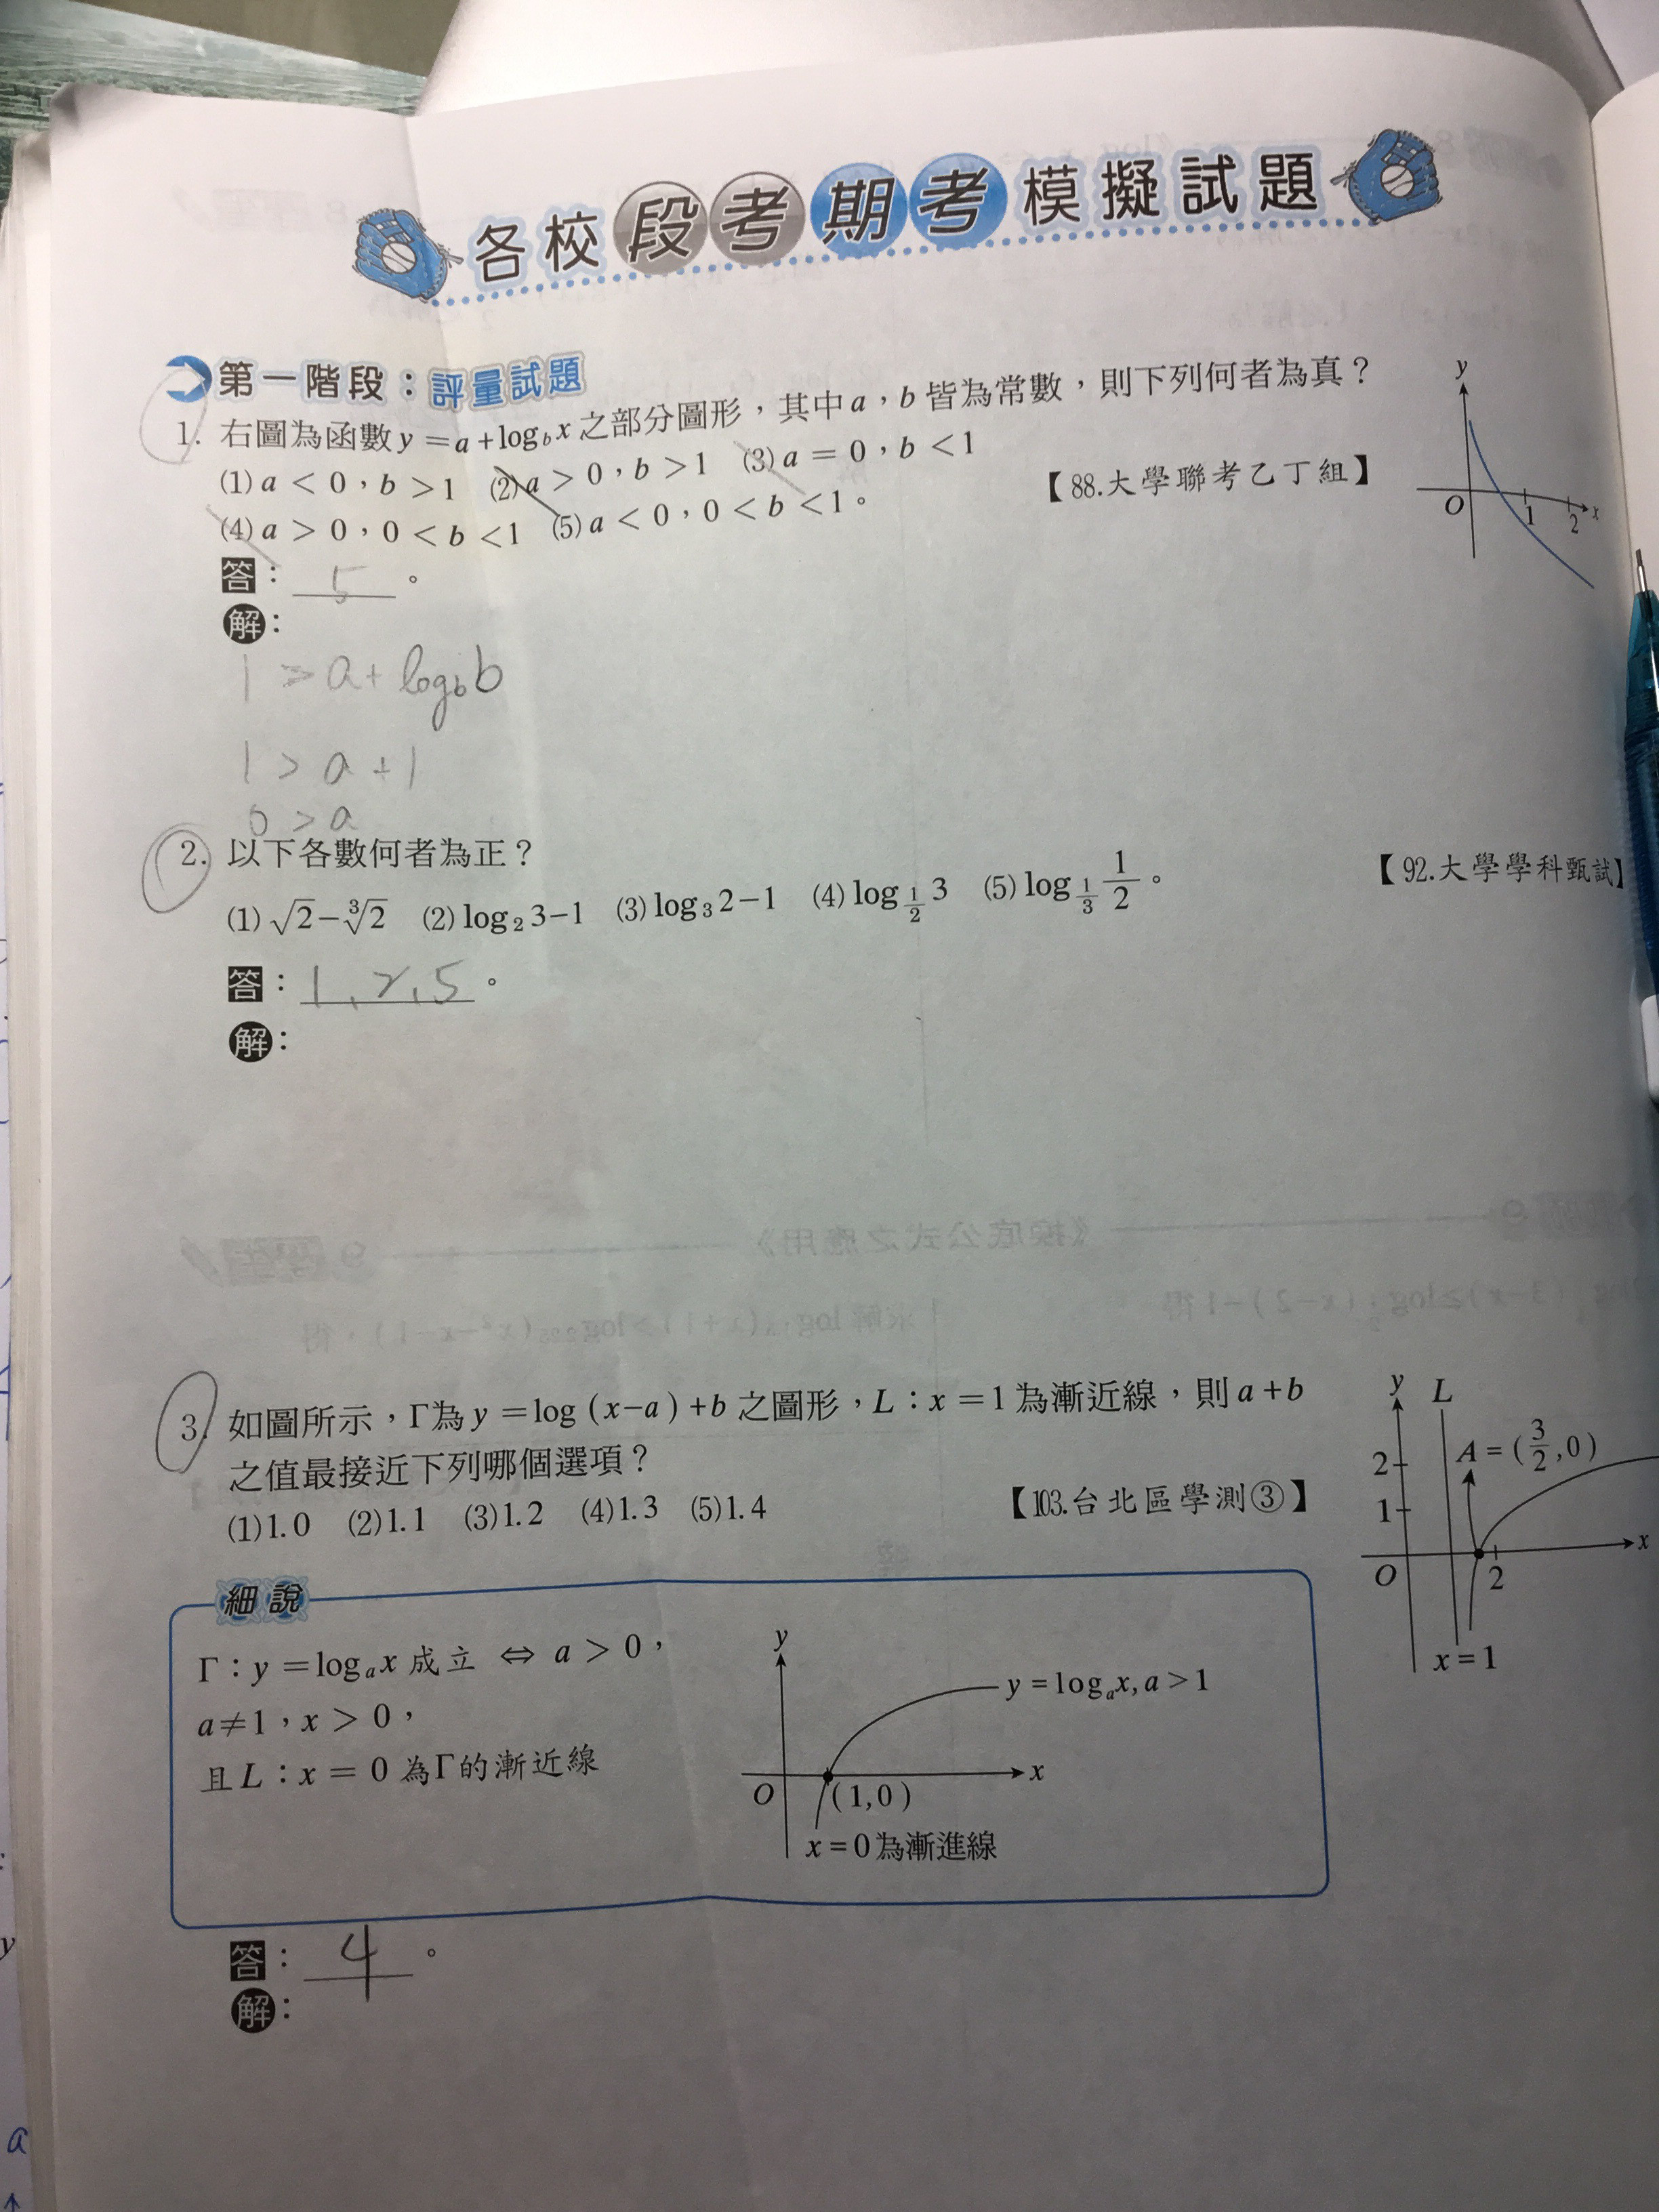 各校段考期考模擬試題
第一階段：評量試題
1. 右圖為函數 y = a + log_b x 之部分圖形，其中 a，b 皆為常數，則下列何者為真？
(1) a < 0，b > 1 (2) a > 0，b > 1 (3) a = 0，b < 1
【88.大學聯考乙丁組】
(4) a > 0，0 < b < 1 (5) a < 0，0 < b < 1。
y
O 1 2 x
答： 5 。
解：
1 > a + log_b b
1 > a + 1
0 > a
2. 以下各數何者為正？
【92.大學學科甄試】
(1) √2 − ∛2 (2) log₂3−1 (3) log₃2−1 (4) log_{1/2} 3 (5) log_{1/3} 1/2。
答： 1, 2, 5 。
解：
3. 如圖所示，Γ為 y = log (x−a) + b 之圖形，L：x = 1 為漸近線，則 a+b
之值最接近下列哪個選項？
(1)1.0 (2)1.1 (3)1.2 (4)1.3 (5)1.4
【103.台北區學測③】
y L
2 A = (3/2, 0)
1
O 2 x
x = 1
細說
Γ：y = log_a x 成立 ⇔ a > 0，
a ≠ 1，x > 0，
且 L：x = 0 為Γ的漸近線
y
y = log_a x, a > 1
x
O (1,0)
x = 0 為漸進線
答： 4 。
解：
y
a